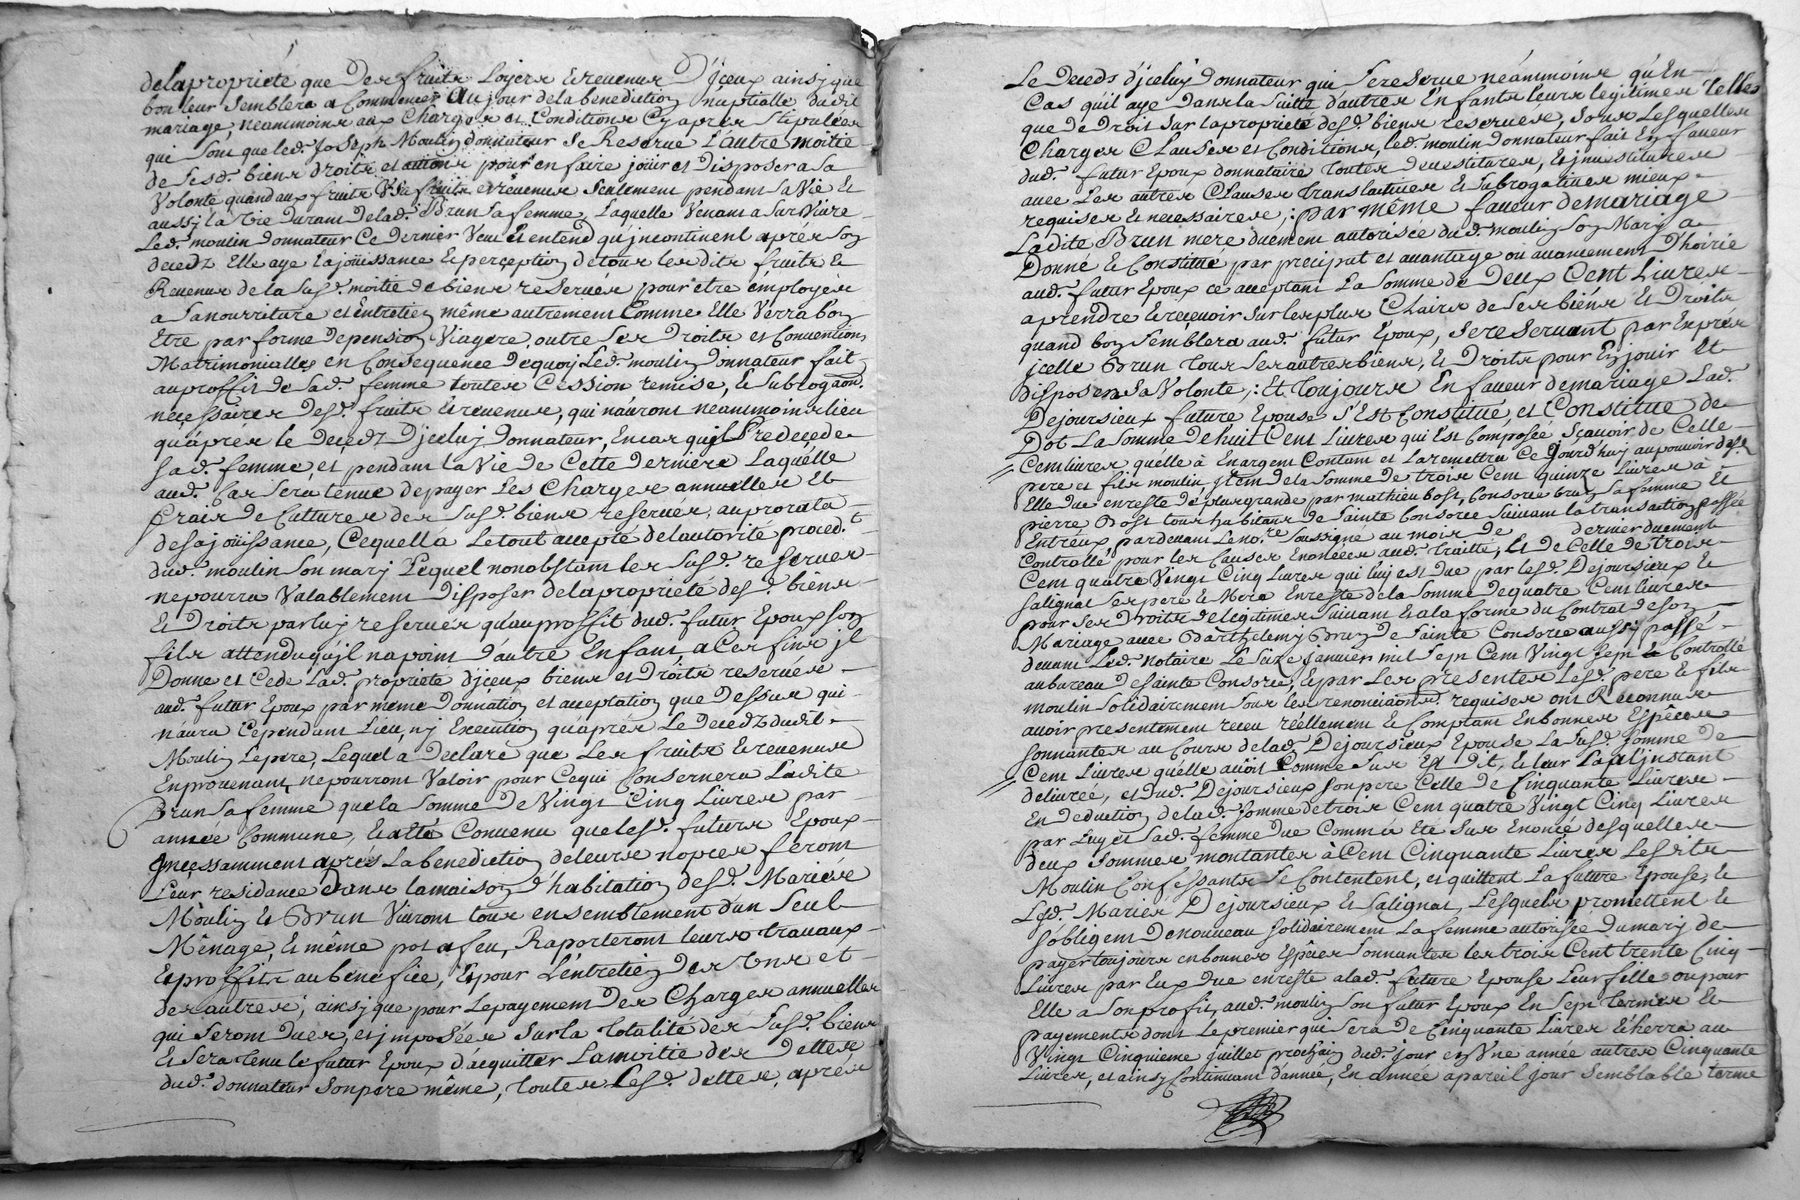 delapropriété que Des fruits Loyers & revenus D'jceux ainsj que
bon leur Semblera a Commencer Aujour delabenediction nuptialle dudit
mariage, neanmoins aux Charges et Conditions Cyaprès Stipulées
qui Sont queled. Joseph Moulin donnateur Se Reserve L'autre moitié
de Sesd. biens droits, et actions pour en faire joüir et Disposer a Sa
Volonté quand aux fruits & revenus Seulement pendant Sa Vie Et
aussj La Vie durant delad. Brun Sa femme, Laquelle Venant a Survivre
Led. moulin donnateur Ce dernier Veut Et entend qu'jncontinent aprés Son
decedz Elle aye La joüissance & perception de tous lesdits fruits &
Revenus de la Susd. moitié de biens reservés pour être employés
a Sa nourriture et Entretien même autrement Comme Elle Verra bon
Etre par forme depension Viagere, outre Ses Droits et Conventions
Matrimonialles en Consequence Dequoy Led. moulin Donnateur fait
auproffit de Sad. femme toutes Cession remise, & Subrogãon.
necessaires desd. fruits & revenus, qui n'auront neanmoins lieu
qu'aprés le Decedz D'jceluj Donnateur, En cas quil Predecede
Sad. femme et pendant la Vie de Cette derniere Laquelle
aud. Cas Sera tenue de payer Les Charges annuelles Et
frais de Cultures des Susd. biens reservés, auprorata
desajoüissance, Cequella Letout accepté de lautorité procedt.
dud. moulin Son marj Lequel nonobstant les Susd. reserves
nepourra Valablement Disposer delapropriété desd. biens
& Droits par luy reservés qu'auproffit dud. futur Epoux Son
fils attendu qu'jl na point D'autre Enfant a Ces fins jl
Donne et Cede Lad. propriété D'jceux biens et Droits reservés
aud. futur Epoux par même Donnation et acceptation que Dessus qui
n'aura Cependant Lieu, nj Execution qu'aprés Le Decedz dudit
Moulin Lepere, Lequel a Declaré que Les fruits & revenus
Enprovenant, nepourront Valoir pour Cequi Consernera Ladite
Brun Sa femme que la Somme De Vingt Cinq Livres par
année Commune, & a été Convenu que lesd. futurs Epoux
Jncessamment aprés La benediction deleurs nopces feront
Leur residance Dans lamaison d'habitation desd. Mariés
Moulin & Brun Vivront tous ensemblement d'un Seul
Mênage, & même pot a feu, Raporteront leurs travaux
& proffits au benefice, & pour L'entretien Des Uns et
des autres; ainsj que pour Lepayement Des Charges annuelles
qui Seront Dues, et jmposées Sur la totalité des Susd. biens
Et Sera tenu le futur Epoux d'acquitter Lamoitié des Dettes
dud. donnateur Sonpere même, toutes Lesd. dettes, aprés
Le Decedz d'jceluj Donnateur qui Se reserve néanmoins qu'En
Cas qu'il aye Dans la Suitte d'autres Enfants leurs legitimes telles
que de Droit Sur lapropriété desd. biens reservés, Sous Lesquelles
Charges Clauses et Conditions, led. moulin donnateur fait En faveur
dud. futur Epoux donnataire toutes devestitures, & jnvestitures
avec Les autres Clauses translatives & Subrogatives mieux
requises & necessaires; par même faveur demariage
Ladite Brun mere duëment autorisée dud. moulin Son Marj a
Donné & Constitué par preciput et avantage ou avancement D'hoirie
aud. futur Epoux ce acceptant La Somme de Deux Cent Livres
aprendre & reçevoir Sur les plus Clairs de Ses biens & Droits
quand bon Semblera aud. futur Epoux, Se reservant par Exprés
jcelle Brun tous Ses autres biens, & Droits pour En jouir Et
Disposer a Sa Volonté; Et toujours En faveur demariage Lad.
Dejoursieux future Epouse S'Est Constitué, et Constitue De
Dot La Somme de huit Cent Livres qui Est Composée Sçavoir de Celle
Cent livres quélle à En argent Contant et La remettra Ce Jourdhuy aupouvoir desd.
pere et fils moulin, jtem de la Somme de trois Cent quinze Livres à
Elle due en reste de plus grande par mathieu bost, Consorce brun Sa femme Et
pierre Bost tous habitans de Sainte Consorce Suivant la transaction passée
Entréux pardevant Le nore. Soussigné au mois de dernier duement
Controllé pour les Causes Enoncées aud. traitté, Et de Celle de trois
Cent quatre Vingt Cinq livres qui luj est due par lesd. Dejoursieux &
Salignat Ses pere & Mere En reste de la Somme dequatre Cent livres
pour Ses Droits de legitimes Suivant & a la forme du Contrat de Son
Mariage avec Barthelemy Brun de Sainte Consorce aussj passé
devant Led. Notaire Le Seize janvier mil Sept Cent Vingt Sept & Controllé
au bureau de Sainte Consorce, & par Les presentes Lesd. pere & fils
moulin Solidairement Sous les renonciãons requises ont Reconnu
avoir presentement reçeu réellement & Comptant Enbonnes Espêces
Sonnantes au Cours de lad. Dejoursieux Epouse La Susd. Somme de
Cent Livres qu'elle avoit Comme Sus Est Dit, & leur La a l'jnstant
delivrée, et dud. Dejoursieux Son pere Celle de Cinquante Livres
En deduction de lad. Somme de trois Cent quatre Vingt Cinq Livres
par Luy et Sad. femme due Comm'a Eté Sus Enoncé desquelles
deux Sommes montantes à Cent Cinquante Livres Lesdits
Moulin Confessants Se Contentent, et quittent La future Epouse, &
Lesd. Mariés Dejoursieux & Salignat, Lesquels promettent &
Sobligent De nouveau Solidairement La femme autorisée Du marj de
payer toujours en bonnes Espêces Sonnantes les trois Cent trente Cinq
Livres par Eux due en reste alad. future Epouse Leur fille ou pour
Elle a Son profit, aud. moulin Son futur Epoux En Sept termes &
payements dont Le premier qui Sera de Cinquante Livres Echerra au
Vingt Cinquieme juillet prochain dud. jour en Une année autres Cinquante
Livres, et ainsy Continuant d'année, En année apareil jour Semblable terme